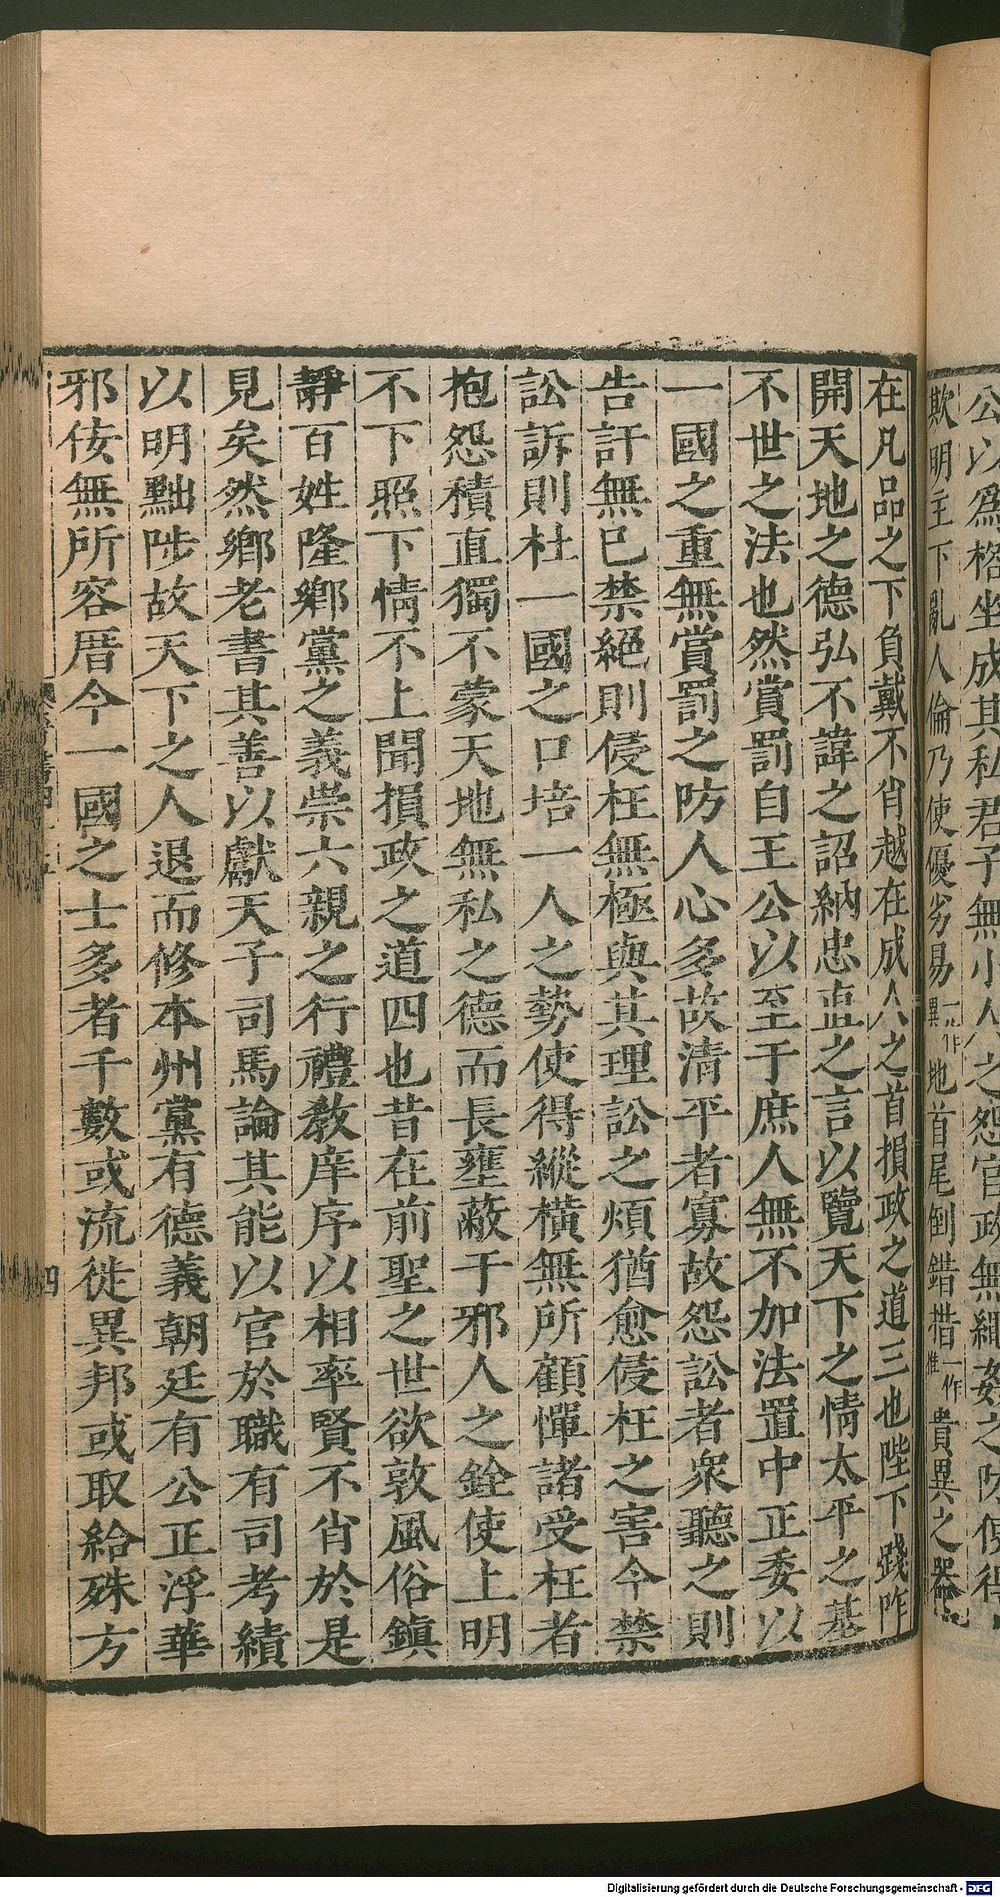 公以爲格坐成其私君子無小人之怨官政無繩姦之防使得上
欺明主下亂人倫乃使優劣易一作異地首尾倒錯措一作推貴異之器
在凡品之下負戴不肖越在成人之首損政之道三也陛下踐阼
開天地之德弘不諱之詔納忠直之言以覽天下之情太平之基
不世之法也然賞罰自王公以至于庶人無不加法置中正委以
一國之重無賞罰之防人心多故清平者寡故怨訟者衆聽之則
告訐無已禁絕則侵枉無極與其理訟之煩猶愈侵枉之害今禁
訟訴則杜一國之口培一人之勢使得縱橫無所顧憚諸受枉者
抱怨積直獨不蒙天地無私之德而長壅蔽于邪人之銓使上明
不下照下情不上聞損政之道四也昔在前聖之世欲敦風俗鎮
靜百姓隆鄉黨之義崇六親之行禮教庠序以相率賢不肖於是
見矣然鄉老書其善以獻天子司馬論其能以官於職有司考績
以明黜陟故天下之人退而修本州黨有德義朝廷有公正浮華
邪佞無所容厝今一國之士多者千數或流徙異邦或取給殊方
四
Digitalisierung gefördert durch die Deutsche Forschungsgemeinschaft - DFG